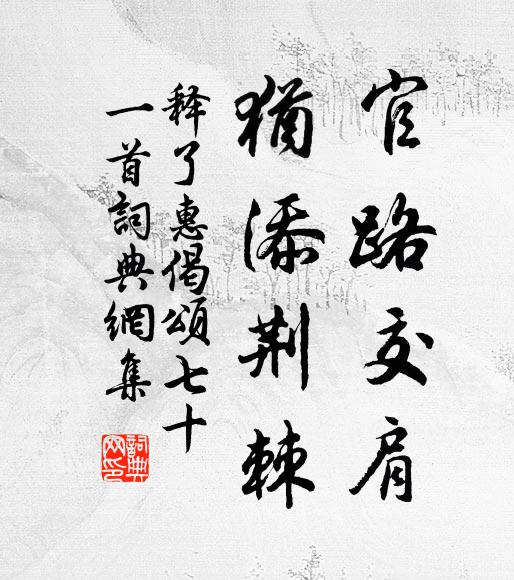 官路交肩
猶添荆棘
释了惠偈頌七十
一首詞典網集
詞典
网印